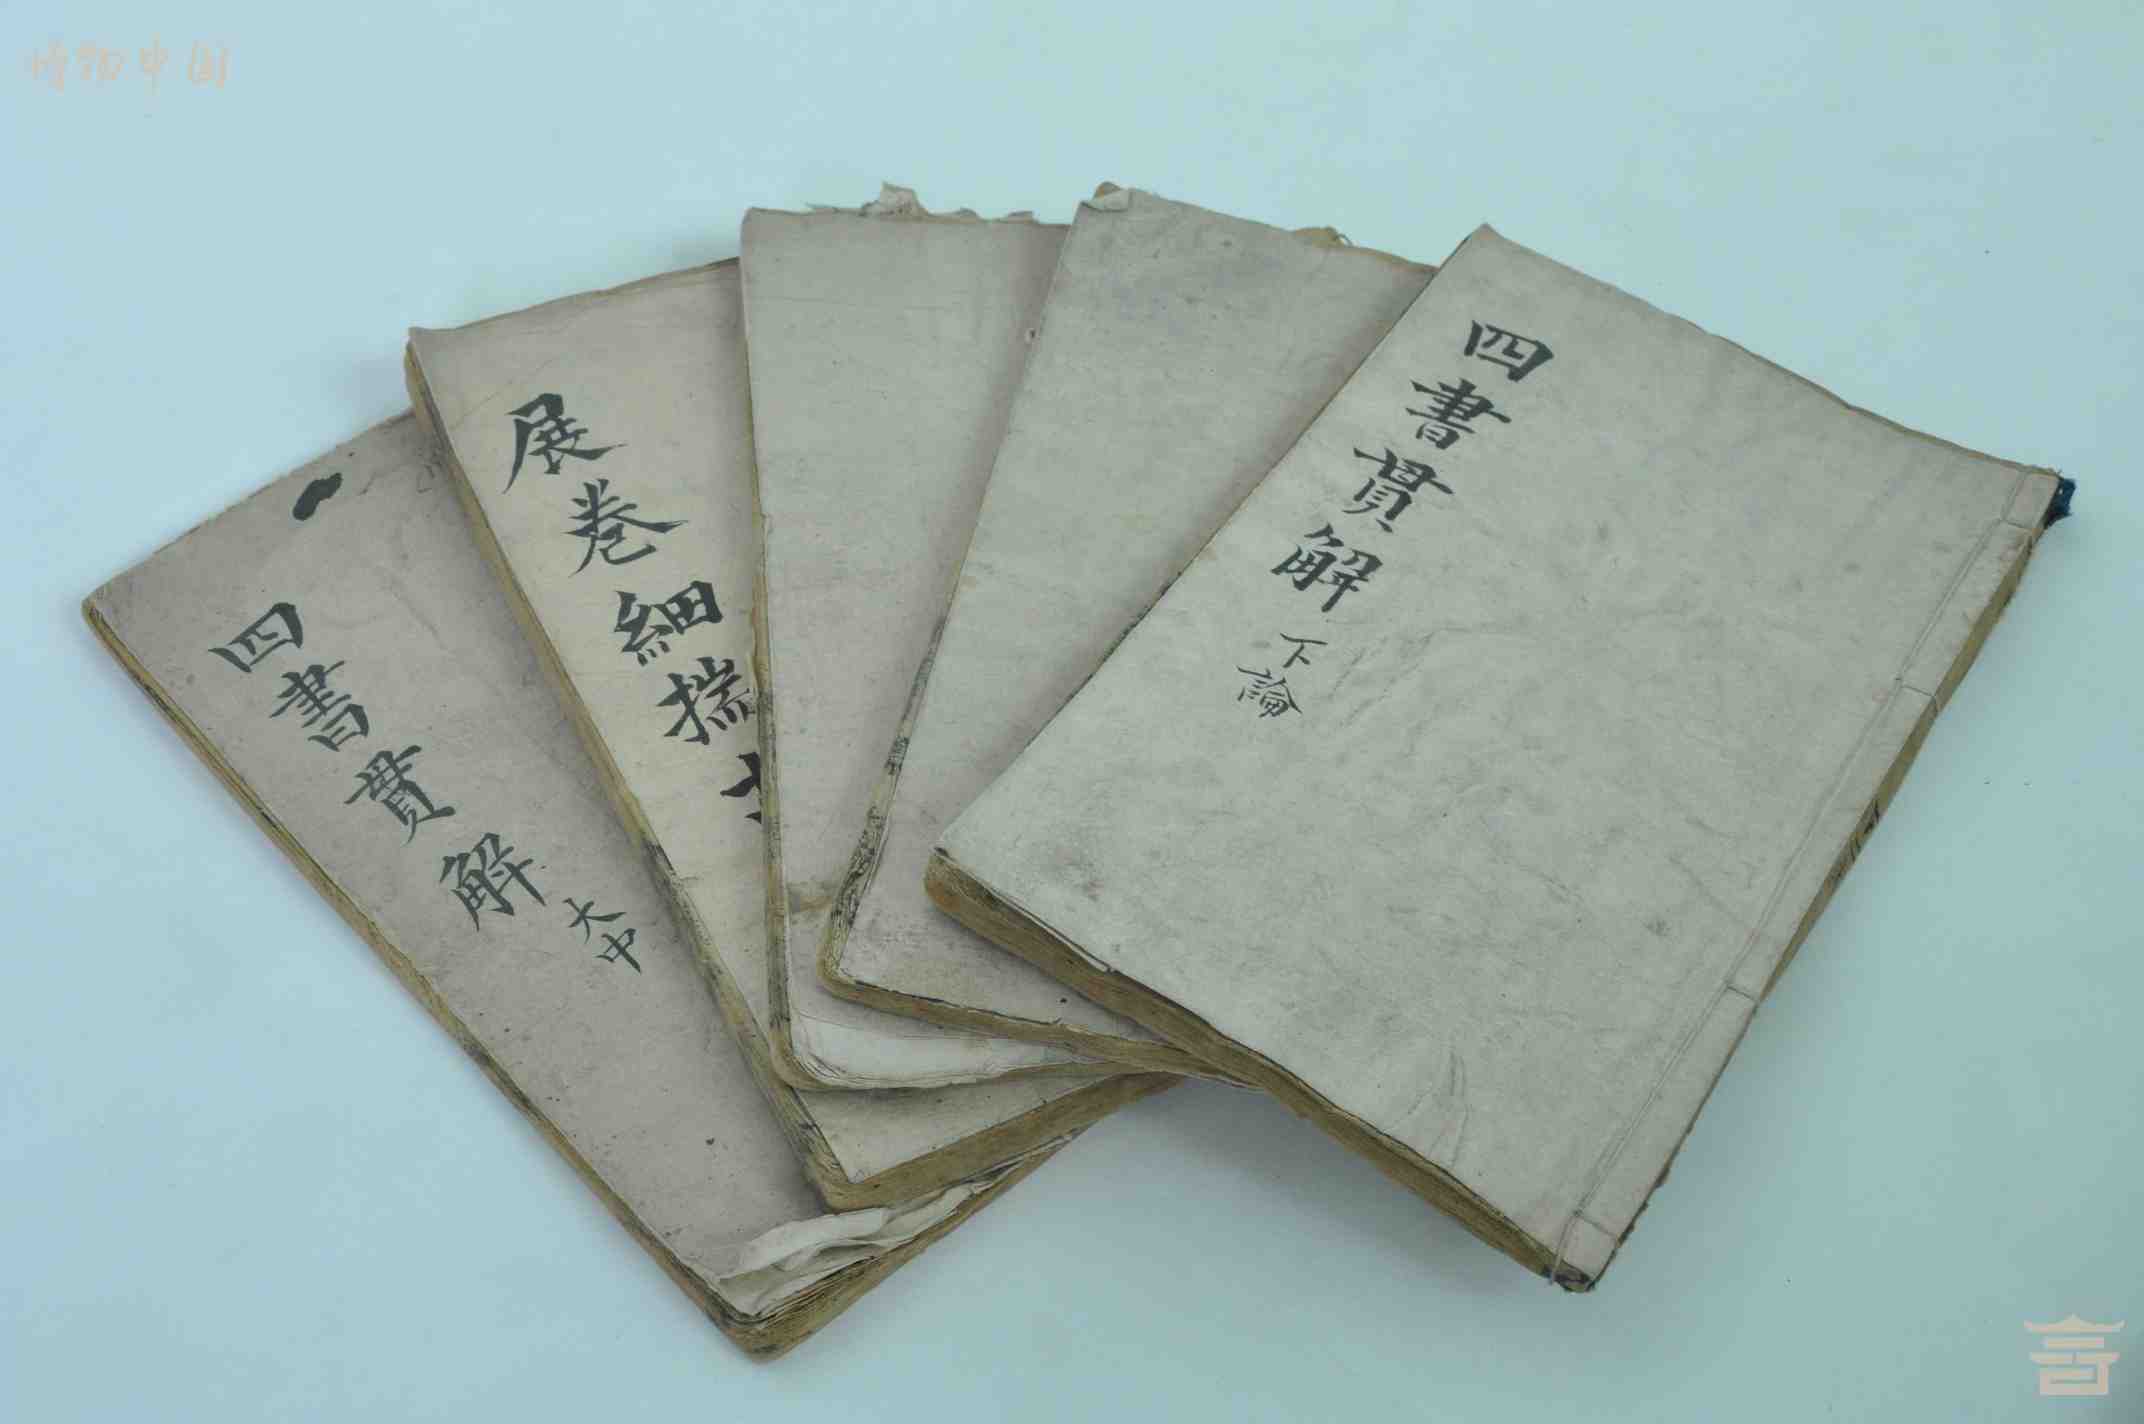 博物中国
四書貫解
大中
展卷細揣
四書貫解
下論